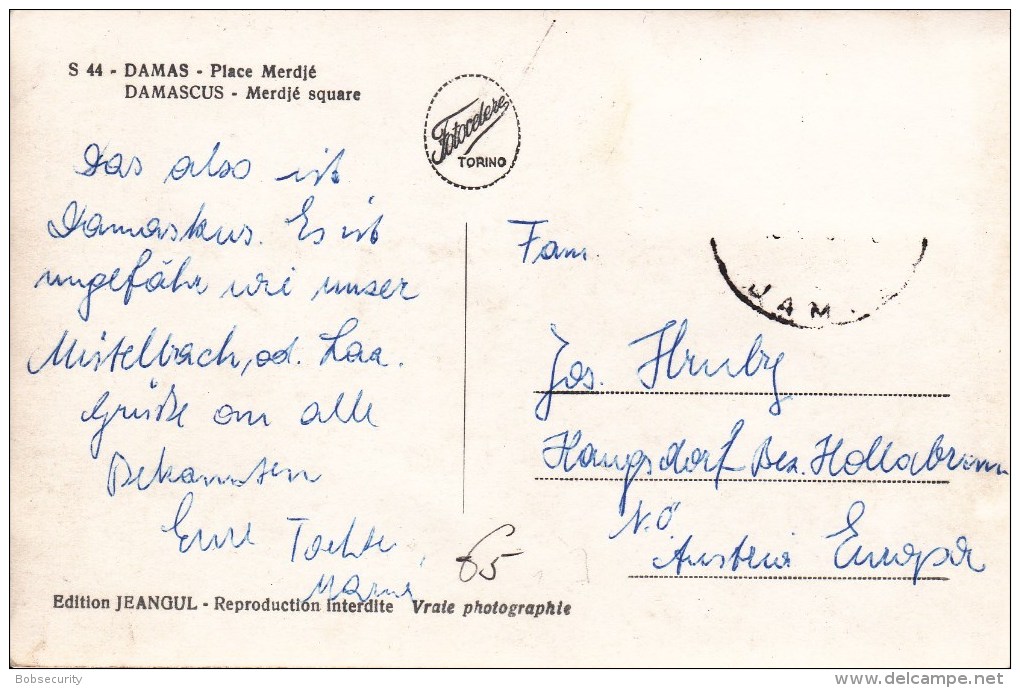 S 44 - DAMAS - Place Merdjé
DAMASCUS - Merdjé square
Fotocelere
TORINO
Das also ist
Damaskus. Es ist
ungefähr wie unser
Mistelbach, od. Laa.
Grüße an alle
Bekannten
Eure Tochter
Fam.
Jos. Hruby
Haugsdorf Bez. Hollabrunn
N.Ö.
Austria Europa
65
Edition JEANGUL - Reproduction interdite Vraie photographie
Bobsecurity
delcampe.net